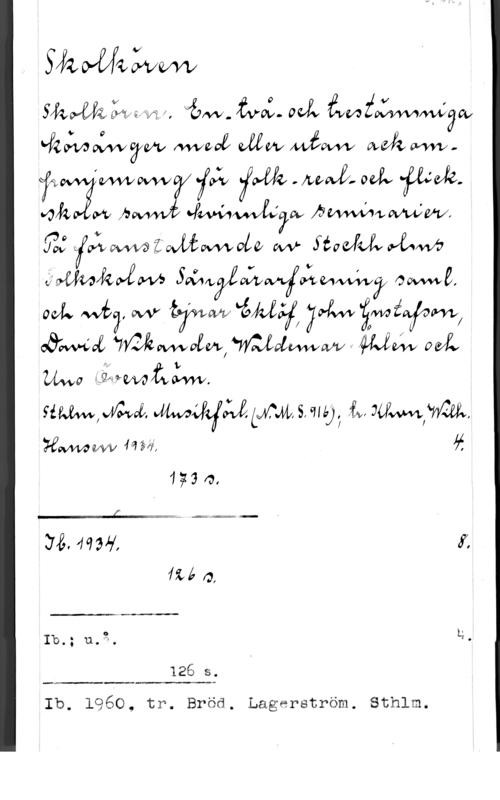 Skolkören
Skolkören. En- två- och trestämmiga
körsånger med eller utan ackom-
panjemang för folk- real- och flick-
skolor samt kvinnliga seminarier.
På föranstaltande av Stockholms
Folkskolors Sånglärarförening saml.
och utg. av Ejnar Eklöf, John Gustafson,
David Wikander, Waldemar Åhlén och
Uno Överström.
Sthlm, Nord. Musikförl. (N.M.S. 916); tr. Khvn, Wilh.
Hansen 1934. 4.
173 s.
Ib. 1934. 8.
126 s.
Ib.; u.å. 4.
126 s.
Ib. 1960, tr. Bröd. Lagerström. Sthlm.